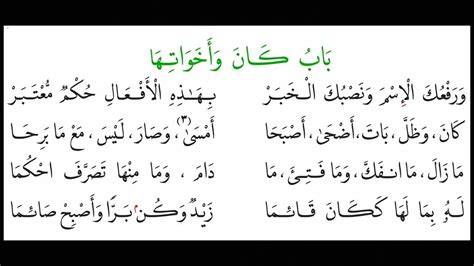 بَابُ كَانَ وَأَخَوَاتِهَا
وَرَفْعُكَ الْإِسْمَ وَنَصْبُكَ الْخَبَرْ بِهَذِهِ الْأَفْعَالِ حُكْمٌ مُعْتَبَرْ
كَانَ، وَظَلَّ، بَاتَ، أَضْحَى، أَصْبَحَا أَمْسَى(٣)، وَصَارَ، لَيْسَ، مَعْ مَا بَرِحَا
مَا زَالَ، مَا انْفَكَّ، وَمَا فَتِئَ، مَا دَامَ، وَمَا مِنْهَا تَصَرَّفَ احْكُمَا
لَهُ بِمَا لَهَا كَكَانَ قَائِمَا زَيْدٌ وَكُنْ بَرًّا وَأَصْبِحْ صَائِمَا